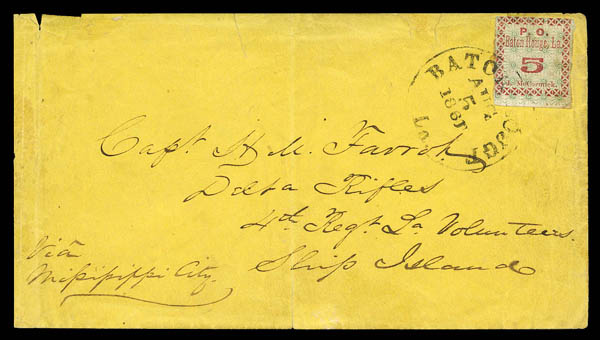 P. O.
Baton Rouge, La.
5
J. McCormick.
BATON ROUGE
AUG
5
1861
La
Capt. H. M. Favrot,
Delta Rifles
4th Regt La Volunteers.
Ship Island
Via
Missisippi City.